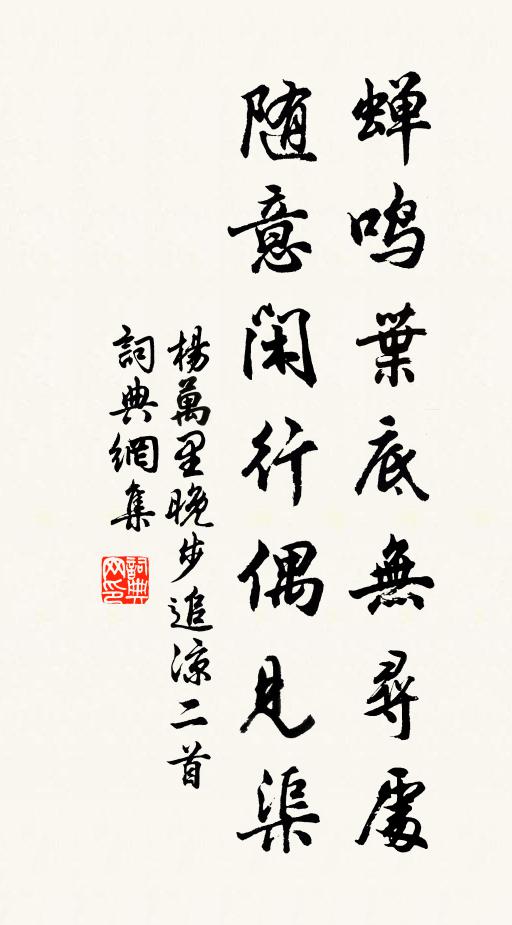 蟬鳴葉底無尋處
随意閑行偶見渠
楊萬里晚步追涼二首
詞典網集
詞典网印